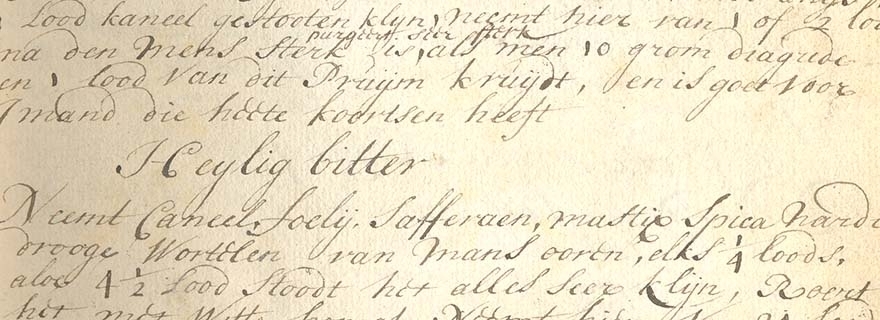 Lood kaneel gestooten klyn, neemt hier van 1 of 2 loo
purgeert seer sterk
na den mens sterk is, als men 10 grom diagride
en 1 lood van dit Pruijm kruijdt, en is goet voor
Imand die heete koortsen heeft
Heylig bitter
Neemt Caneel, foelij, Safferaen, mastix Spica nardi
drooge Wortelen van mans ooren, elks ¼ loods,
aloe 4½ Lood Stoodt het alles seer klijn, Roert
het met